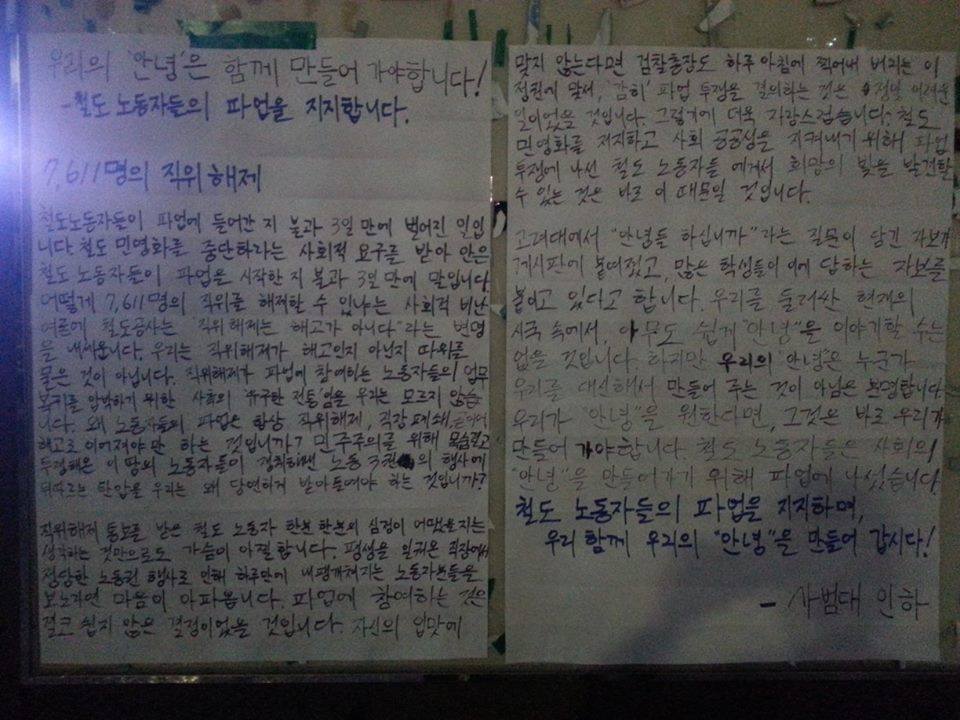 우리의 '안녕'은 함께 만들어 가야합니다!
- 철도 노동자들의 파업을 지지합니다.
7,611명의 직위해제
철도노동자들이 파업에 들어간 지 불과 3일 만에 벌어진 일입
니다. 철도 민영화를 중단하라는 사회적 요구를 받아 안은
철도 노동자들이 파업을 시작한 지 불과 3일 만에 말입니다.
어떻게 7,611명의 직위를 해제할 수 있냐는 사회적 비난
여론에 철도공사는 "직위해제는 해고가 아니다"라는 변명
을 내세웁니다. 우리는 직위해제가 해고인지 아닌지 따위를
물은 것이 아닙니다. 직위해제가 파업에 참여하는 노동자들의 업무
복귀를 압박하기 위한 사측의 유구한 전통임을 우리는 모르지 않습
니다. 왜 노동자들의 파업은 항상 직위해제, 직장폐쇄,
해고로 이어져야만 하는 것입니까? 민주주의를 위해 목숨걸고
투쟁해온 이 땅의 노동자들이 쟁취해낸 노동 3권의 행사에
뒤따르는 탄압을 우리는 왜 당연하게 받아들여야 하는 것입니까?
직위해제 통보를 받은 철도 노동자 한분 한분의 심정이 어땠을지는
생각하는 것만으로도 가슴이 아릿합니다. 평생을 일궈온 직장에서
정당한 노동권 행사로 인해 하루만에 내팽개쳐지는 노동자분들을
보노라면 마음이 아파옵니다. 파업에 참여하는 것은
결코 쉽지 않은 결정이었을 것입니다. 자신의 입맛에
맞지 않는다면 검찰총장도 하루 아침에 찍어내 버리는 이
정권에 맞서, '감히' 파업 투쟁을 결의하는 것은 정말 어려운
일이었을 것입니다. 그렇기에 더욱 자랑스럽습니다. 철도
민영화를 저지하고 사회 공공성을 지켜내기 위해 파업
투쟁에 나선 철도 노동자들에게서 희망의 빛을 발견할
수 있는 것은 바로 이 때문일 것입니다.
고려대에서 "안녕들 하십니까"라는 질문이 담긴 자보가
게시판에 붙여졌고, 많은 학생들이 이에 답하는 자보를
붙이고 있다고 합니다. 우리를 둘러싼 현재의
시국 속에서, 아무도 쉽게 "안녕"을 이야기할 수는
없을 것입니다. 하지만 우리의 '안녕'은 누군가
우리를 대신해서 만들어 주는 것이 아님은 분명합니다.
우리가 "안녕"을 원한다면, 그것은 바로 우리가
만들어 가야합니다. 철도 노동자들은 사회의
"안녕"을 만들어가기 위해 파업에 나섰습니다.
철도 노동자들의 파업을 지지하며,
우리 함께 우리의 "안녕"을 만들어 갑시다!
- 사범대 인하